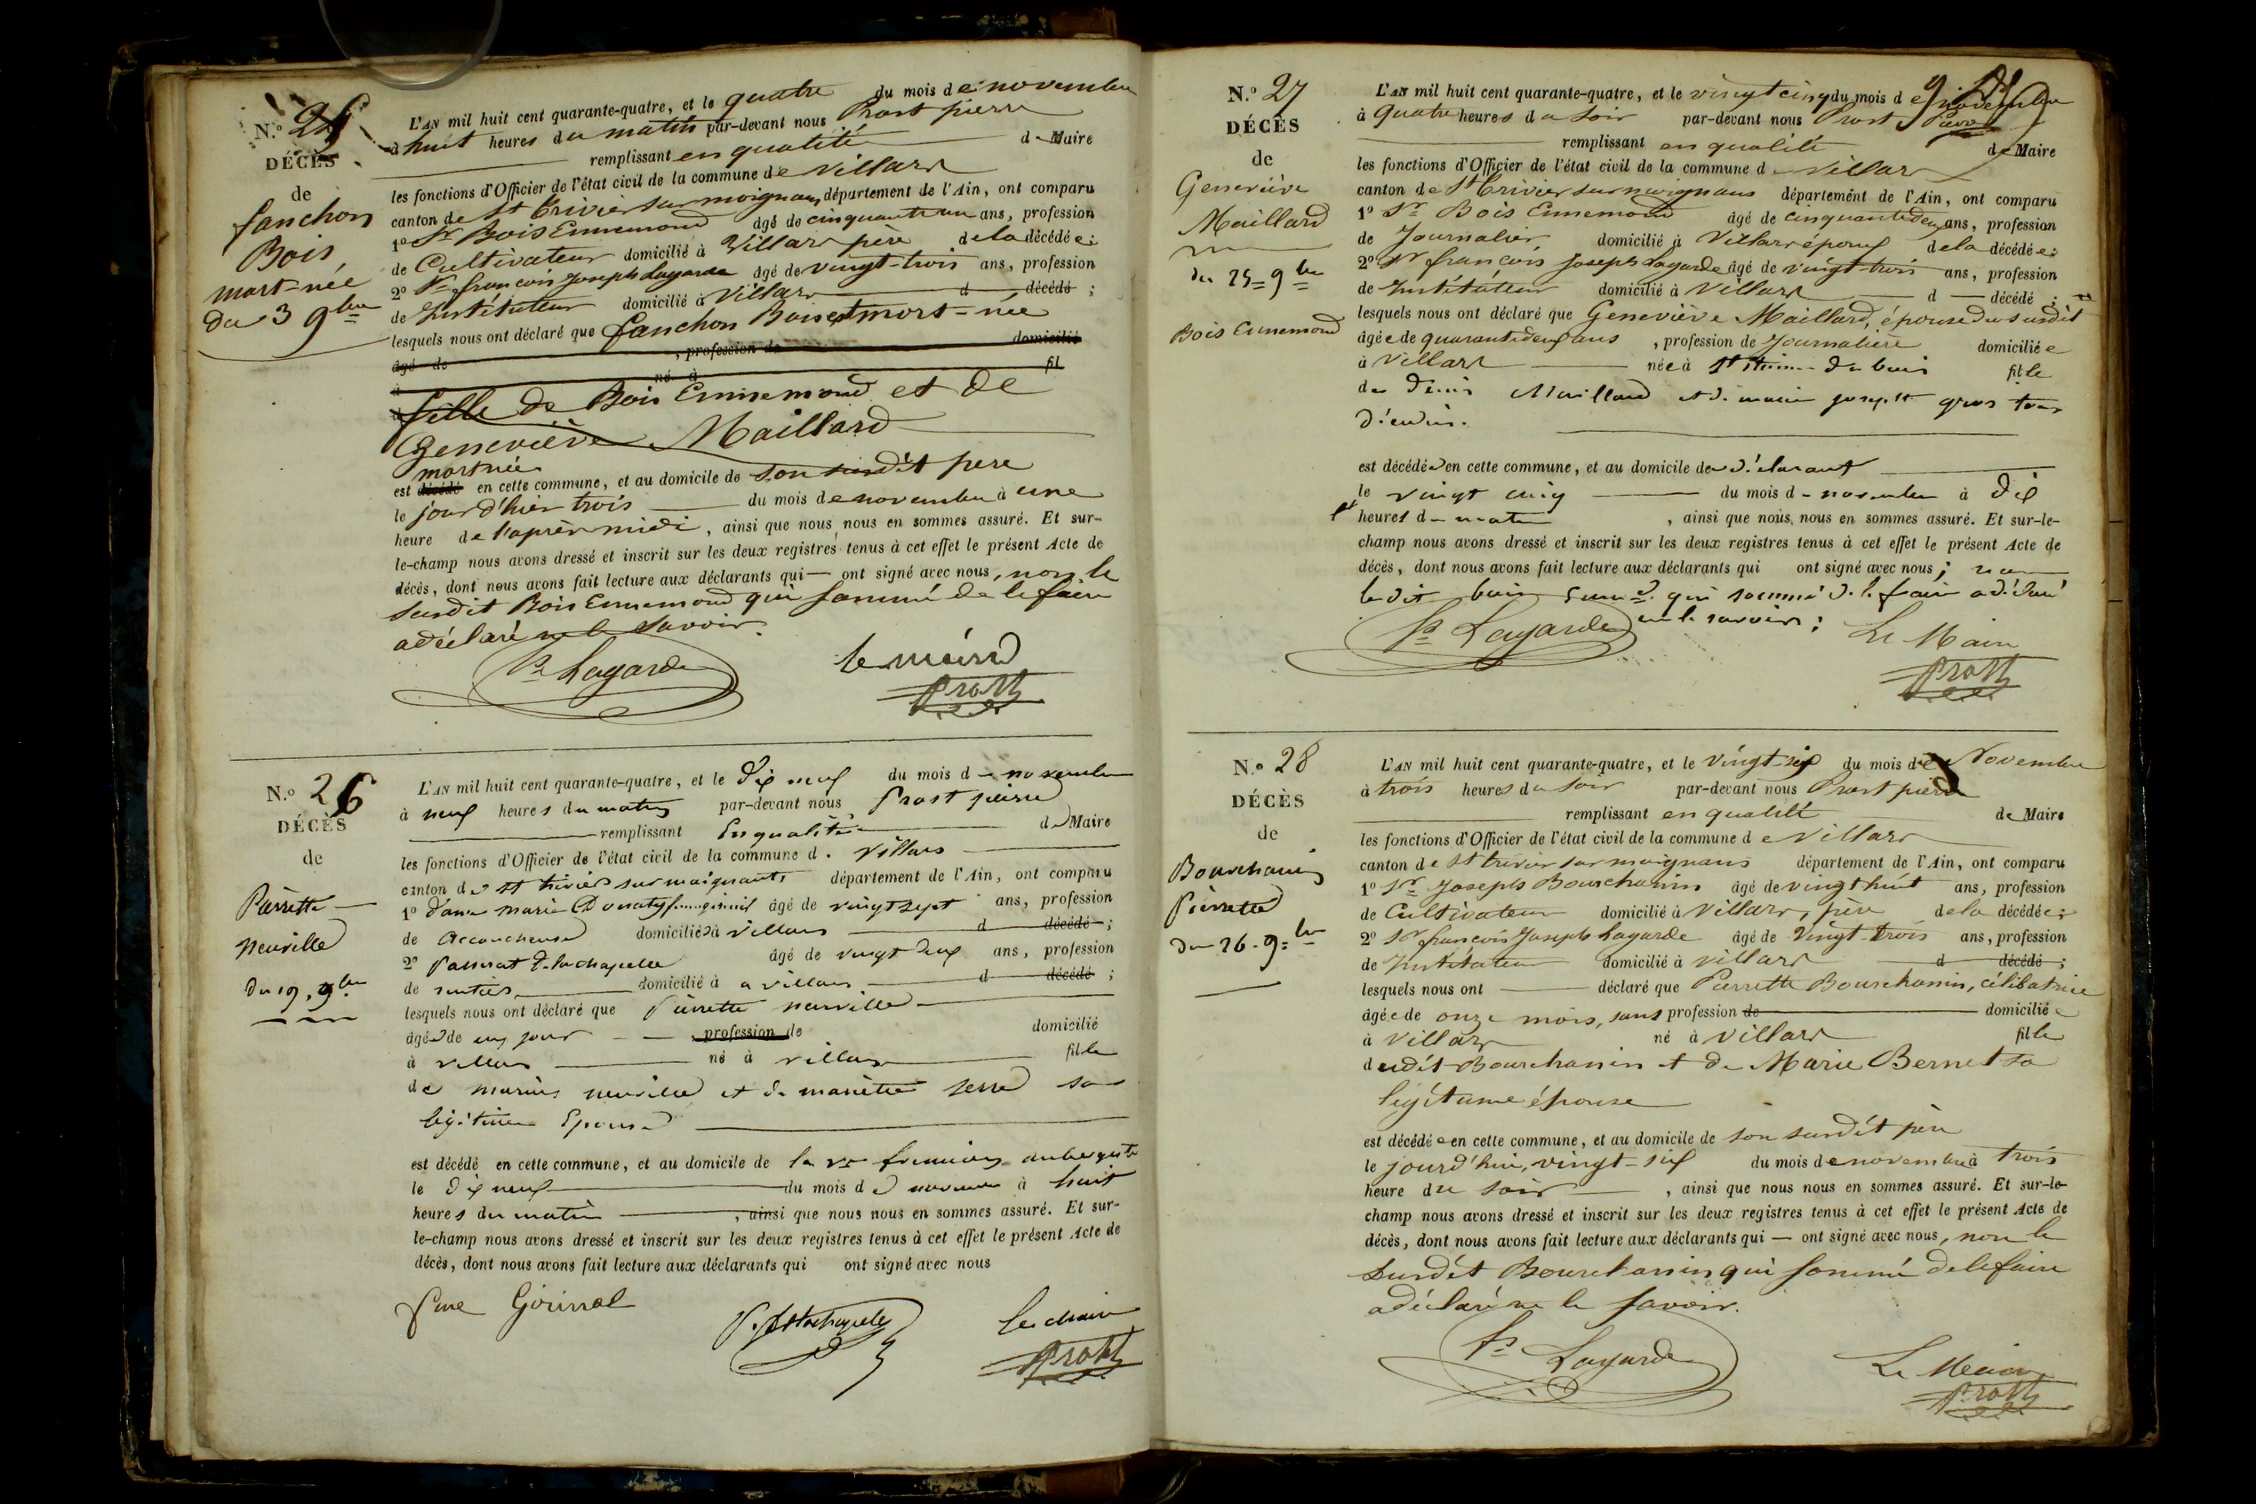 N.º 25
DÉCÈS
de
fanchon
Bois
mort-née
du 3 9bre
L'AN mil huit cent quarante-quatre, et le quatre du mois de novembre
à huit heures du matin par-devant nous Prost pierre
remplissant en qualité de Maire
les fonctions d'Officier de l'état civil de la commune de Villars
canton de St Trivier sur moignans, département de l'Ain, ont comparu
1º Sr Bois Ennemond âgé de cinquante un ans, profession
de Cultivateur domicilié à Villars père de la décédée;
2º Sr françois Joseph Lagarde âgé de vingt-trois ans, profession
de Instituteur domicilié à Villars d décédé ;
lesquels nous ont déclaré que fanchon Bois est mort-née
âgé de , profession de domicilié
à né à fil
fille de Bois Ennemond et de
Geneviève Maillard
mort née
est décédé en cette commune, et au domicile de son susdit père
le jour d'hier trois du mois de novembre à une
heure de l'après midi, ainsi que nous nous en sommes assuré. Et sur-
le-champ nous avons dressé et inscrit sur les deux registres tenus à cet effet le présent Acte de
décès, dont nous avons fait lecture aux déclarants qui — ont signé avec nous, non le
susdit Bois Ennemond qui sommé de le faire
a déclaré ne le savoir.
Lagarde
le maire
Prost
N.º 26
DÉCÈS
de
Pierrette
neuville
du 19. 9bre
L'AN mil huit cent quarante-quatre, et le dix neuf du mois de novembre
à neuf heures du matin par-devant nous Prost pierre
remplissant En qualité de Maire
les fonctions d'Officier de l'état civil de la commune d. Villars
canton de st trivier sur moignants département de l'Ain, ont comparu
1º dame marie âgé de vingt sept ans, profession
de accoucheuse domiciliée à villars d décédé ;
2º passerat de lachapelle âgé de vingt deux ans, profession
de rentier domicilié à a villars d décédé ;
lesquels nous ont déclaré que Pierrette neuville
âgée de un jour profession de domicilié
à villars né à villars fille
de marius neuville et de mariette serre sa
légitime Epouse
est décédé en cette commune, et au domicile de la aubergiste
le dix neuf du mois de novembre à huit
heures du matin, ainsi que nous nous en sommes assuré. Et sur-
le-champ nous avons dressé et inscrit sur les deux registres tenus à cet effet le présent Acte de
décès, dont nous avons fait lecture aux déclarants qui ont signé avec nous
P. Delachapelle
le maire
Prost
N.º 27
DÉCÈS
de
Geneviève
Maillard
du 25 9bre
Bois Ennemond
L'AN mil huit cent quarante-quatre, et le vingt cinq du mois de novembre
à quatre heures du soir par-devant nous Prost Pierre
remplissant en qualité de Maire
les fonctions d'Officier de l'état civil de la commune de Villars
canton de St Trivier sur moignans département de l'Ain, ont comparu
1º Sr Bois Ennemond âgé de cinquante deux ans, profession
de Journalier domicilié à Villars époux de la décédée;
2º Sr françois Joseph Lagarde âgé de vingt trois ans, profession
de Instituteur domicilié à Villars d — décédé ;
lesquels nous ont déclaré que Geneviève Maillard, épouse du susdit
âgée de quarante deux ans, profession de Journalière domiciliée
à Villars née à St du bois fille
de Denis Maillard et de marie
est décédée en cette commune, et au domicile de déclarant
le vingt cinq du mois de novembre à dix
heures d matin, ainsi que nous nous en sommes assuré. Et sur-le-
champ nous avons dressé et inscrit sur les deux registres tenus à cet effet le présent Acte de
décès, dont nous avons fait lecture aux déclarants qui ont signé avec nous; non
le dit bois qui sommé de le faire a déclaré
ne le savoir;
Lagarde
Le Maire
Prost
N.º 28
DÉCÈS
de
Bourchanin
Pierrette
du 26. 9bre
L'AN mil huit cent quarante-quatre, et le vingt-six du mois de Novembre
à trois heures du soir par-devant nous Prost pierre
remplissant en qualité de Maire
les fonctions d'Officier de l'état civil de la commune de Villars
canton de St trivier sur moignans département de l'Ain, ont comparu
1º Sr Joseph Bourchanin âgé de vingt huit ans, profession
de Cultivateur domicilié à Villars, père de la décédée;
2º Sr françois Joseph Lagarde âgé de vingt-trois ans, profession
de Instituteur domicilié à villars d décédé ;
lesquels nous ont déclaré que Pierrette Bourchanin, célibataire
âgée de onze mois, sans profession de domiciliée
à Villars né à Villars fille
dudit Bourchanin et de Marie Bernet sa
légitime épouse
est décédée en cette commune, et au domicile de son susdit père
le jourd'hui, vingt-six du mois de novembre à trois
heure du soir, ainsi que nous nous en sommes assuré. Et sur-le-
champ nous avons dressé et inscrit sur les deux registres tenus à cet effet le présent Acte de
décès, dont nous avons fait lecture aux déclarants qui — ont signé avec nous, non le
susdit Bourchanin qui sommé de le faire
a déclaré ne le savoir.
Lagarde
Le Maire
Prost